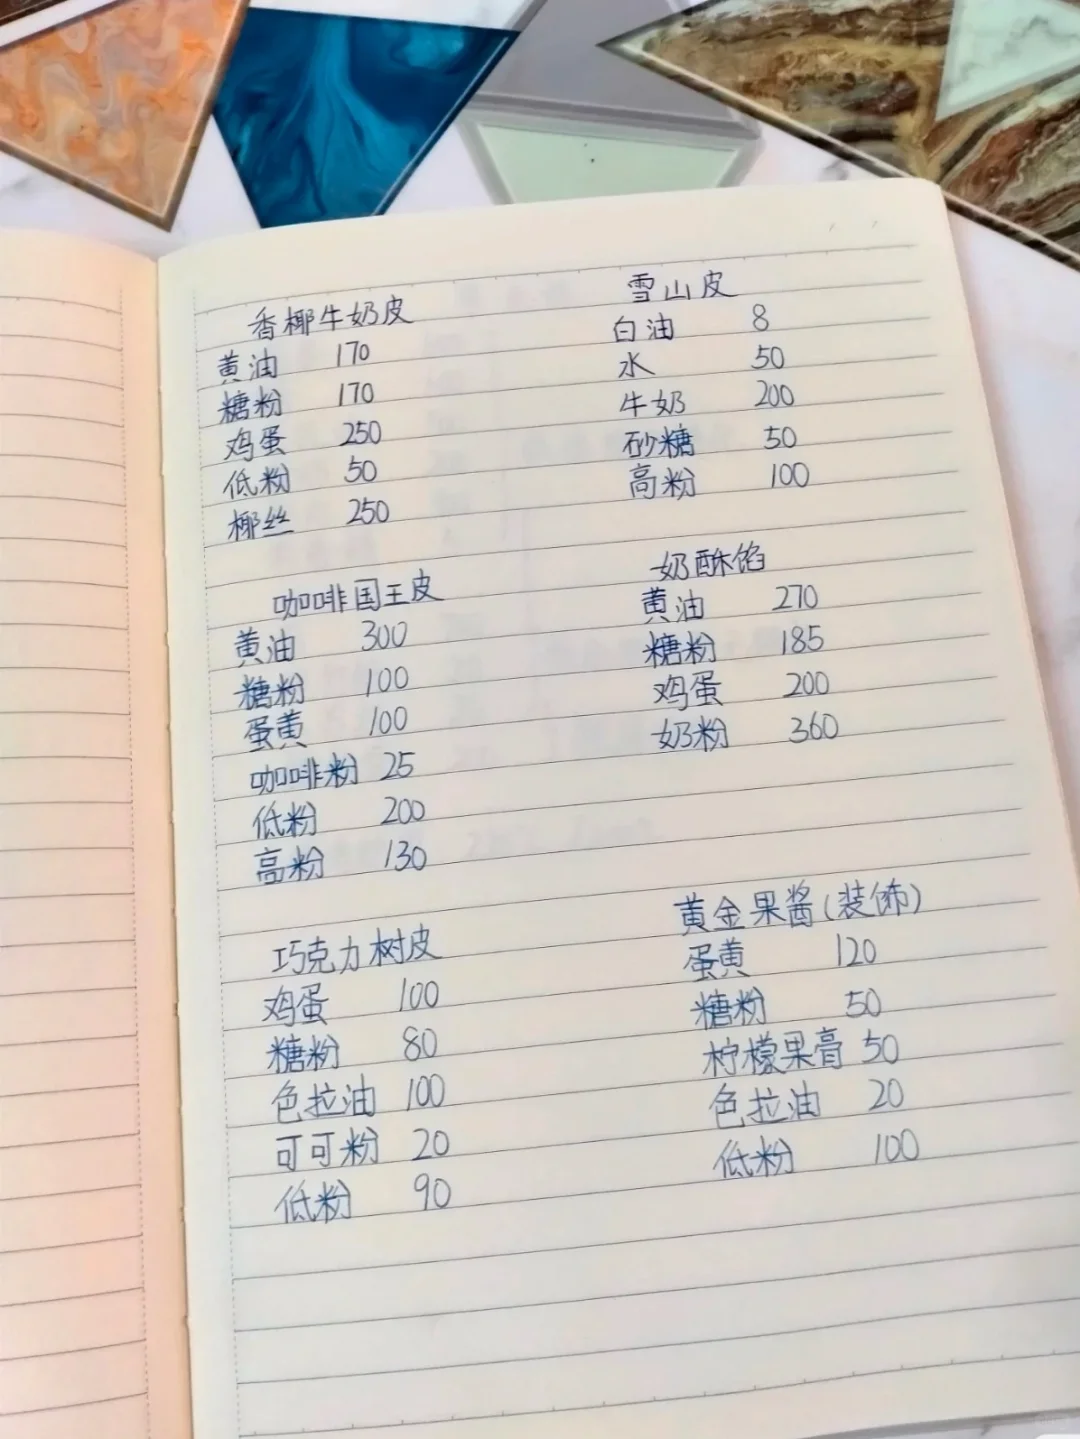 香椰牛奶皮
黄油 170
糖粉 170
鸡蛋 250
低粉 50
椰丝 250
雪山皮
白油 8
水 50
牛奶 200
砂糖 50
高粉 100
咖啡国王皮
黄油 300
糖粉 100
蛋黄 100
咖啡粉 25
低粉 200
高粉 130
奶酥馅
黄油 270
糖粉 185
鸡蛋 200
奶粉 360
巧克力树皮
鸡蛋 100
糖粉 80
色拉油 100
可可粉 20
低粉 90
黄金果酱(装饰)
蛋黄 120
糖粉 50
柠檬果膏 50
色拉油 20
低粉 100